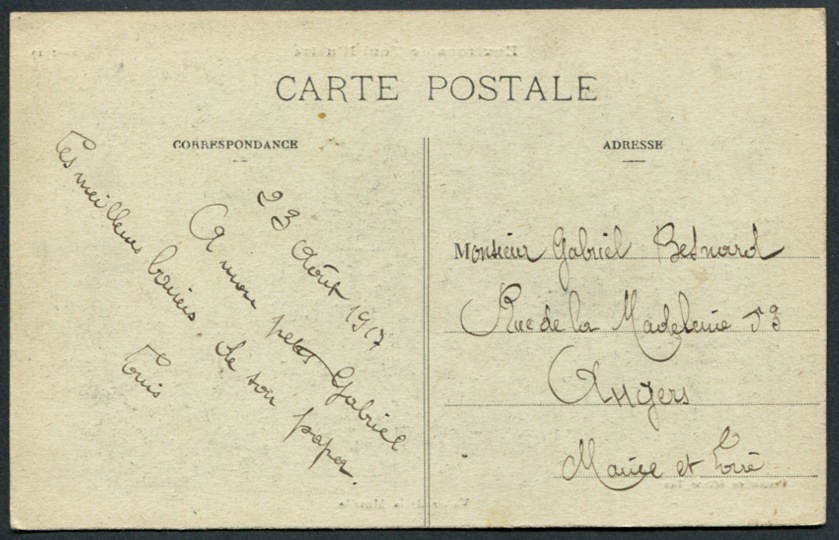 CARTE POSTALE
CORRESPONDANCE
23 Août 1917
A mon petit Gabriel
Les meilleurs baisers de son papa.
Louis
ADRESSE
Monsieur Gabriel Besnard
Rue de la Madeleine 53
Angers
Maine et Loire